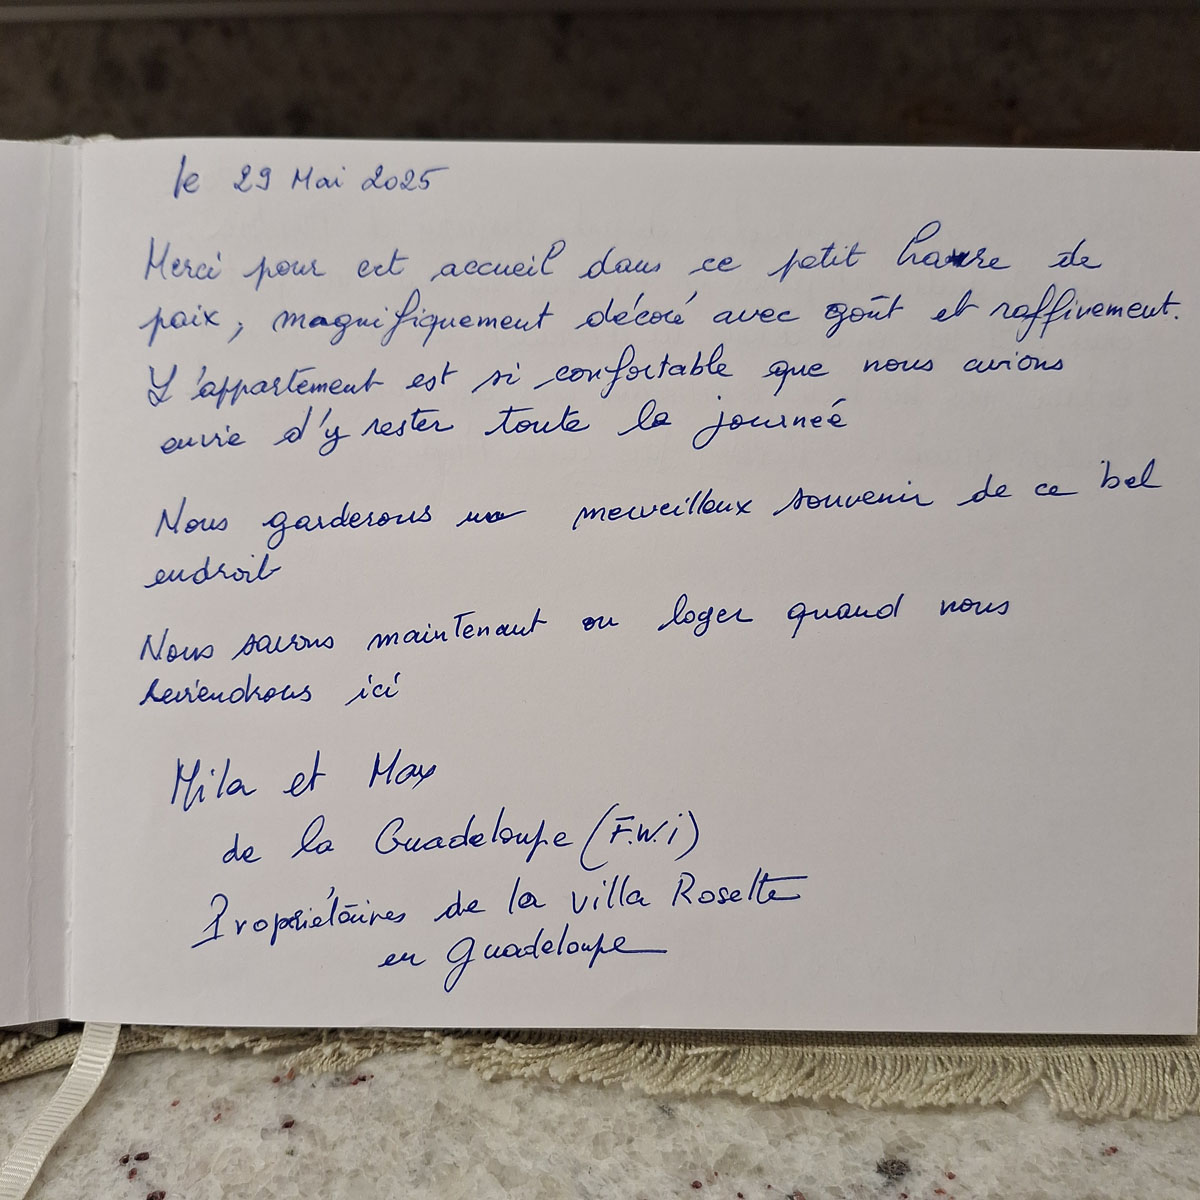 le 29 Mai 2025
Merci pour cet accueil dans ce petit havre de
paix, magnifiquement décoré avec goût et raffinement.
L'appartement est si confortable que nous avions
envie d'y rester toute la journée
Nous garderons un merveilleux souvenir de ce bel
endroit
Nous savons maintenant ou loger quand nous
reviendrons ici
Mila et Max
de la Guadeloupe (F.W.i)
Propriétaires de la villa Roselte
en Guadeloupe